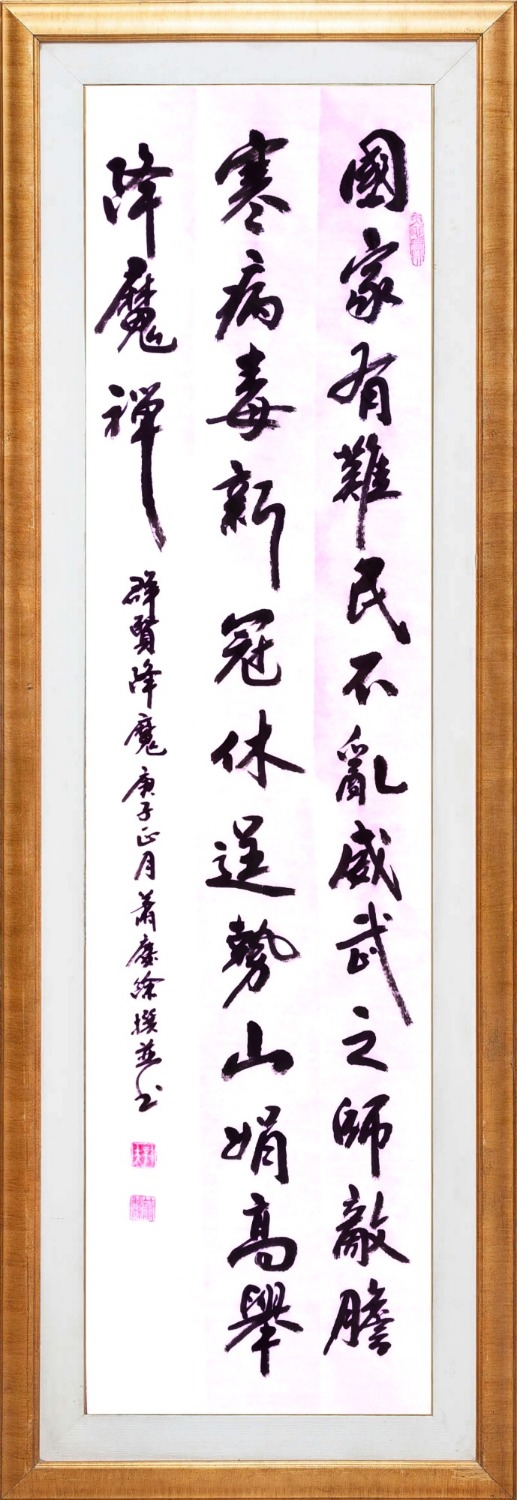 國家有難民不亂威武之師敵膽
寒病毒新冠休逞勢山娟高舉
降魔禅
群賢降魔 庚子正月 蕭 徐撰並书